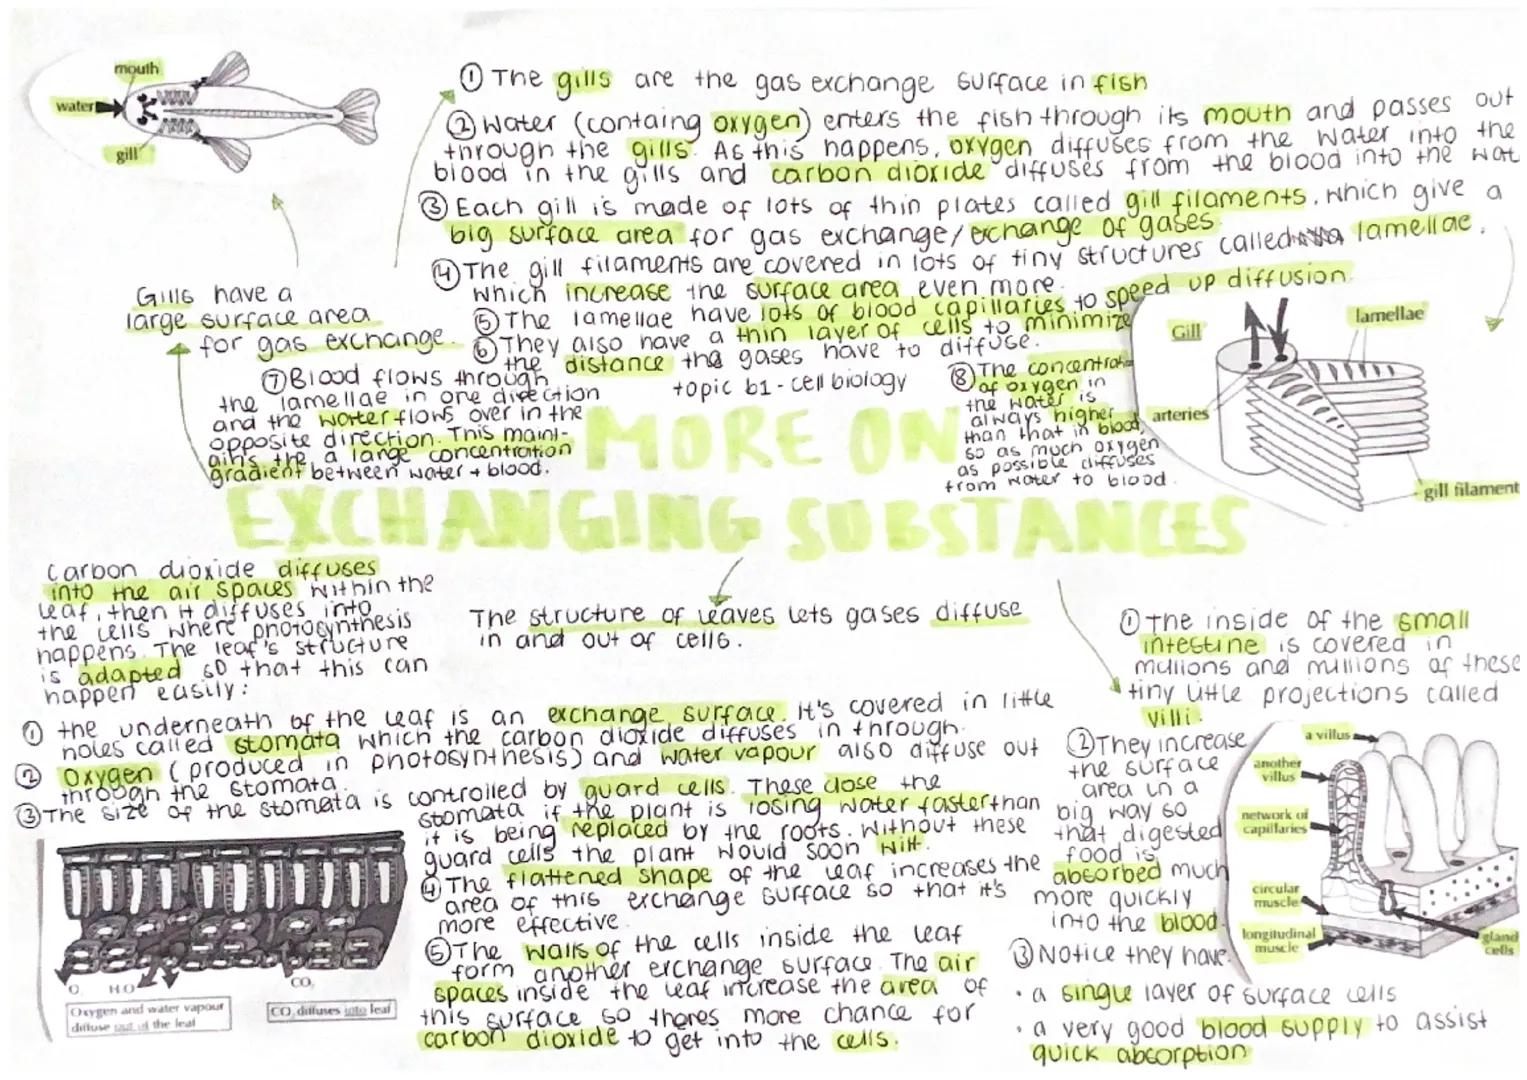 mouth
water
gill
① The gills are the gas exchange surface in fish
② Water (containg oxygen) enters the fish through its mouth and passes out
through the gills. As this happens, oxygen diffuses from the water into the
blood in the gills and carbon dioxide diffuses from the blood into the wat
③ Each gill is made of lots of thin plates called gill filaments, which give a
big surface area for gas exchange/exchange of gases.
④ The gill filaments are covered in lots of tiny structures called lamellae,
which increase the surface area even more.
⑤ The lamellae have lots of blood capillaries to speed up diffusion.
⑥ They also have a thin layer of cells to minimize
the distance the gases have to diffuse.
Gills have a
large surface area
for gas exchange.
⑦ Blood flows through
the lamellae in one direction
and the water flows over in the
opposite direction. This maint-
ains the a large concentration
gradient between water + blood.
topic b1 - cell biology
⑧ The concentrat-
of oxygen in
the water is
always higher
than that in blood,
so as much oxygen
as possible diffuses
from water to blood.
Gill
lamellae
arteries
gill filament
MORE ON
EXCHANGING SUBSTANCES
Carbon dioxide diffuses
into the air spaces within the
leaf, then it diffuses into
the cells where photosynthesis
happens. The leaf's structure
is adapted so that this can
happen easily:
The structure of leaves lets gases diffuse
in and out of cells.
① the underneath of the leaf is an exchange surface. It's covered in little
holes called stomata which the carbon dioxide diffuses in through.
② Oxygen (produced in photosynthesis) and water vapour also diffuse out
through the stomata.
③ The size of the stomata is controlled by guard cells. These close the
stomata if the plant is losing water faster than
it is being replaced by the roots. Without these
guard cells the plant would soon wilt.
④ The flattened shape of the leaf increases the
area of this exchange surface so that it's
more effective.
⑤ The walls of the cells inside the leaf
form another exchange surface. The air
spaces inside the leaf increase the area of
this surface so theres more chance for
carbon dioxide to get into the cells.
O₂ H₂O
CO₂
Oxygen and water vapour
diffuse out of the leaf
CO₂ diffuses into leaf
① The inside of the small
intestine is covered in
millions and millions of these
tiny little projections called
villi.
② They increase
the surface
area in a
big way so
that digested
food is
absorbed much
more quickly
into the blood.
③ Notice they have:
• a single layer of surface cells
• a very good blood supply to assist
quick absorption
a villus
another
villus
network of
capillaries
circular
muscle
longitudinal
muscle
gland
cells